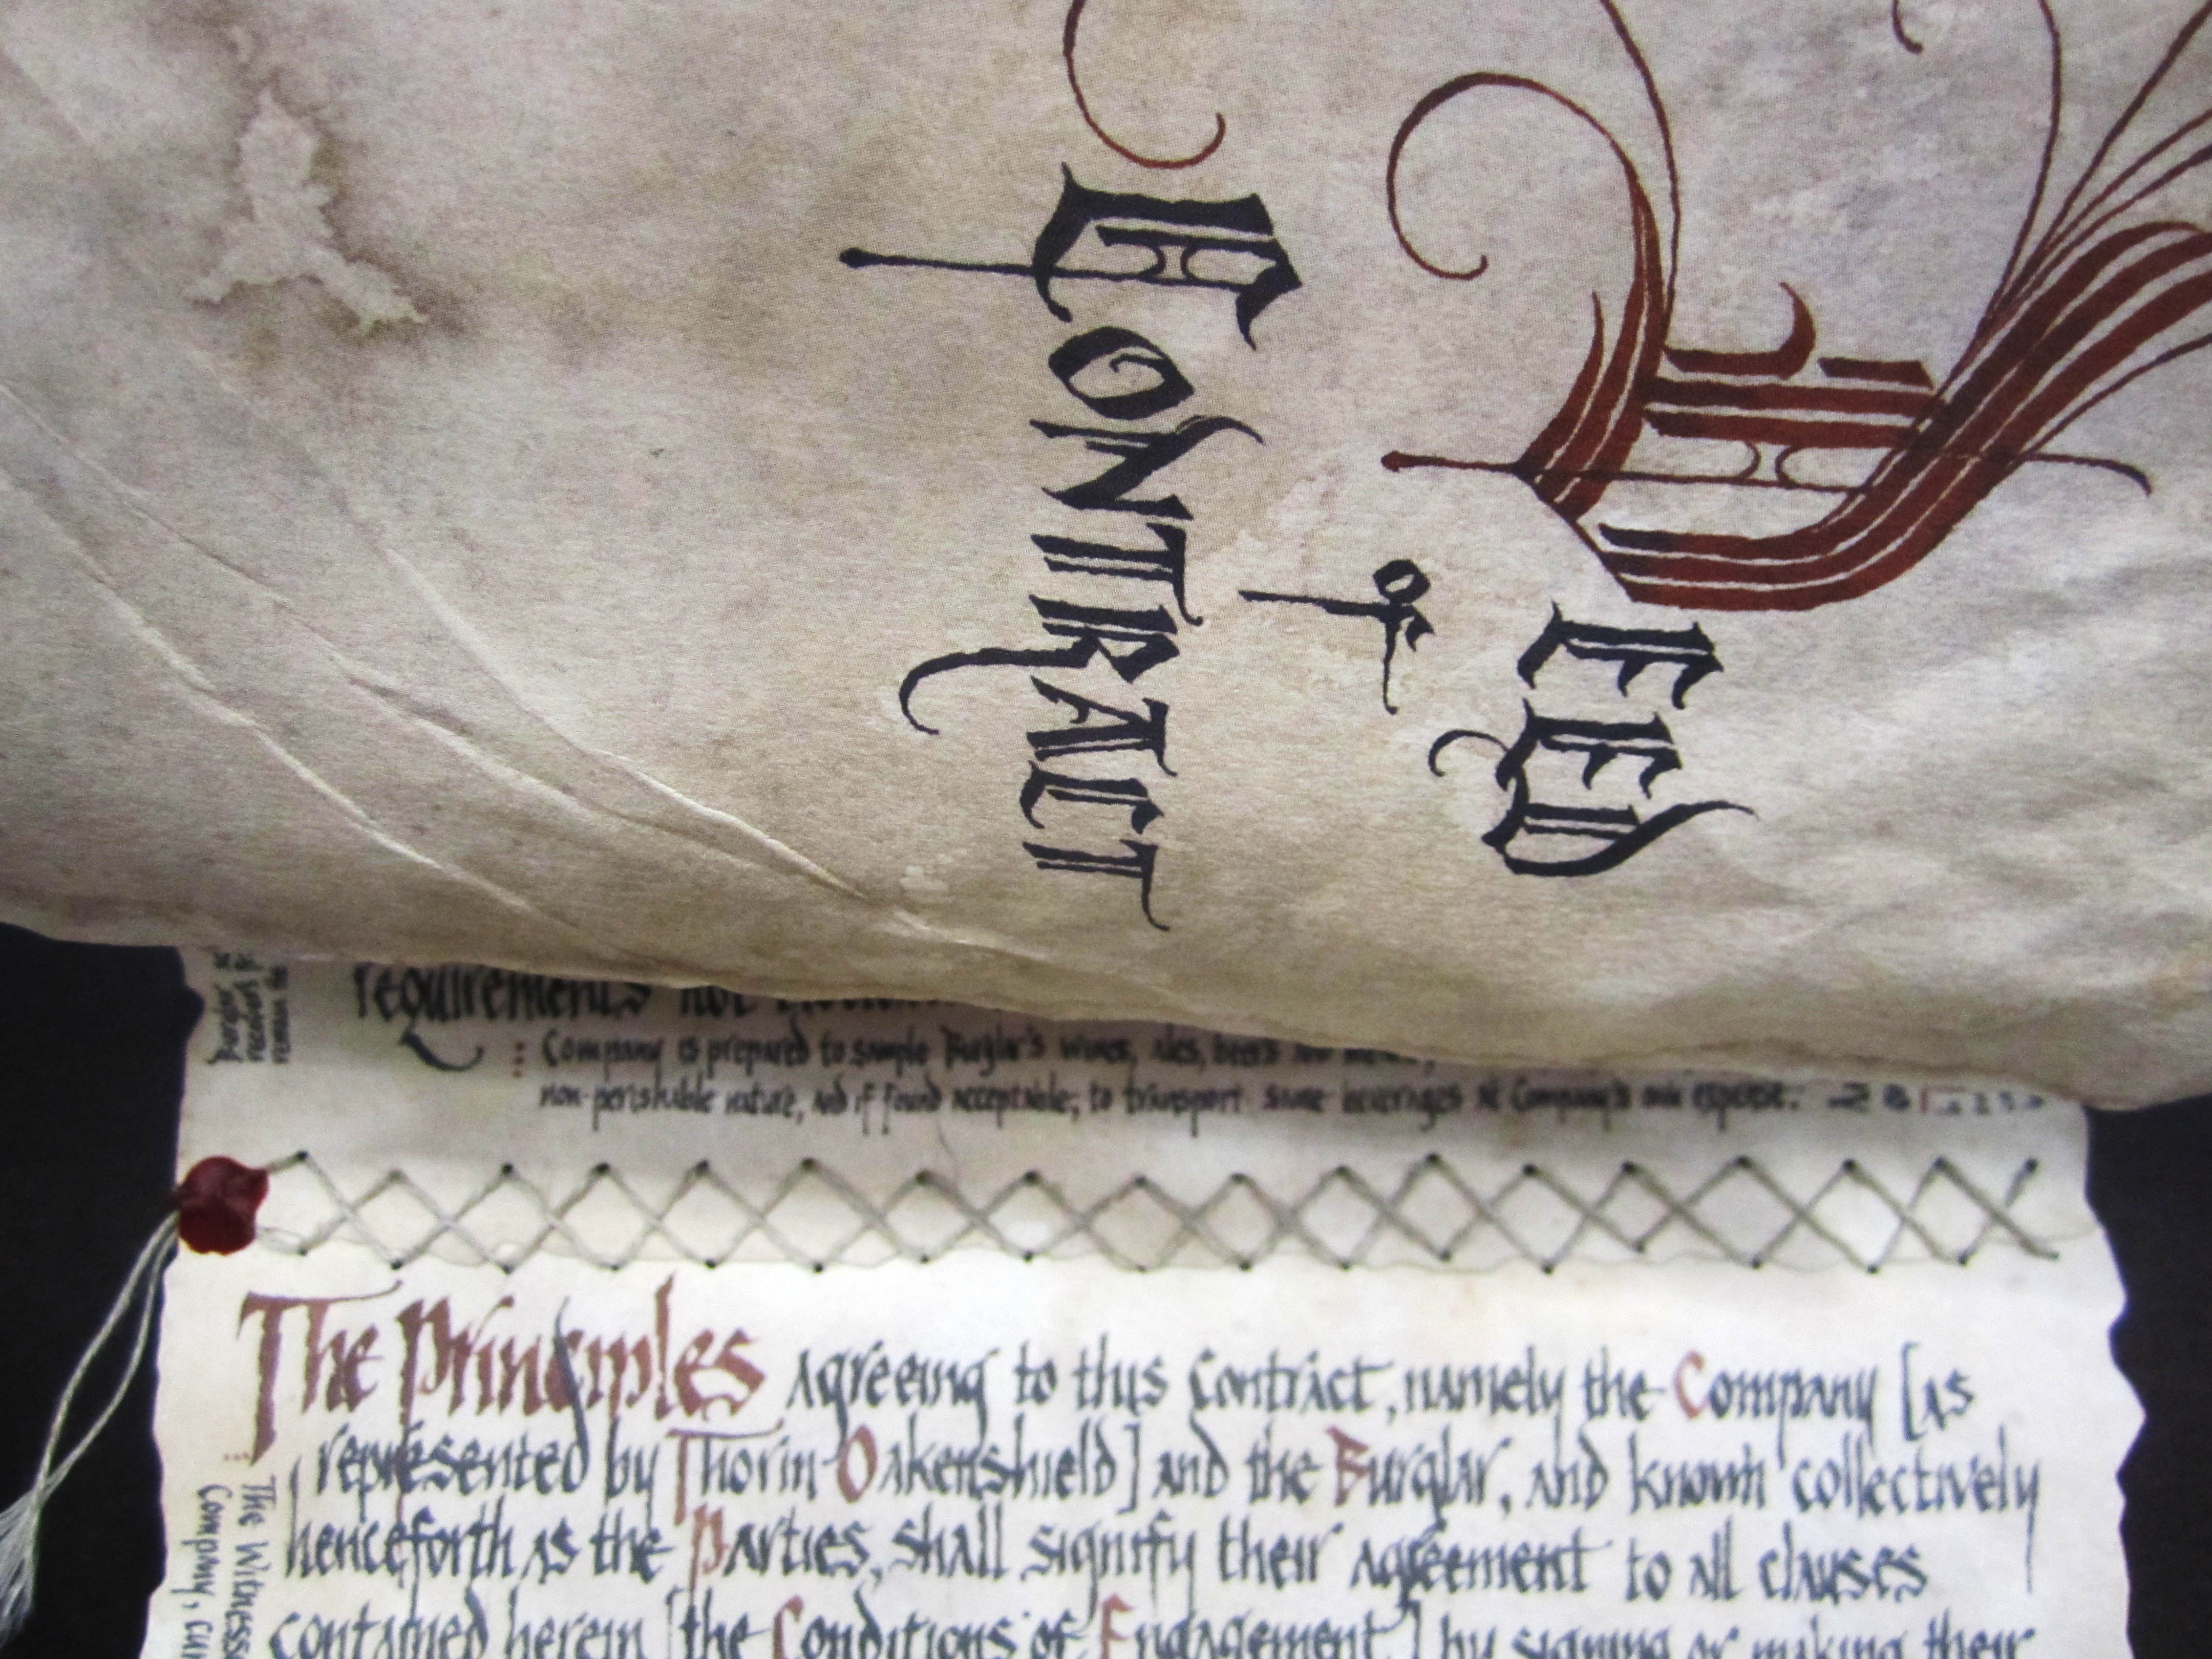 DEED
of
CONTRACT
requirements not
Company is prepared to sample Burglar's wines, ales, beers
non-perishable nature, and if found acceptable; to transport same beverages at Company's own expense.
The Principles agreeing to this Contract, namely the Company [as
represented by Thorin Oakenshield] and the Burglar, and known collectively
henceforth as the Parties, shall signify their agreement to all clauses
contained herein [the Conditions of Engagement] by signing or making their
The Witness
Company,
Burglar
remain the